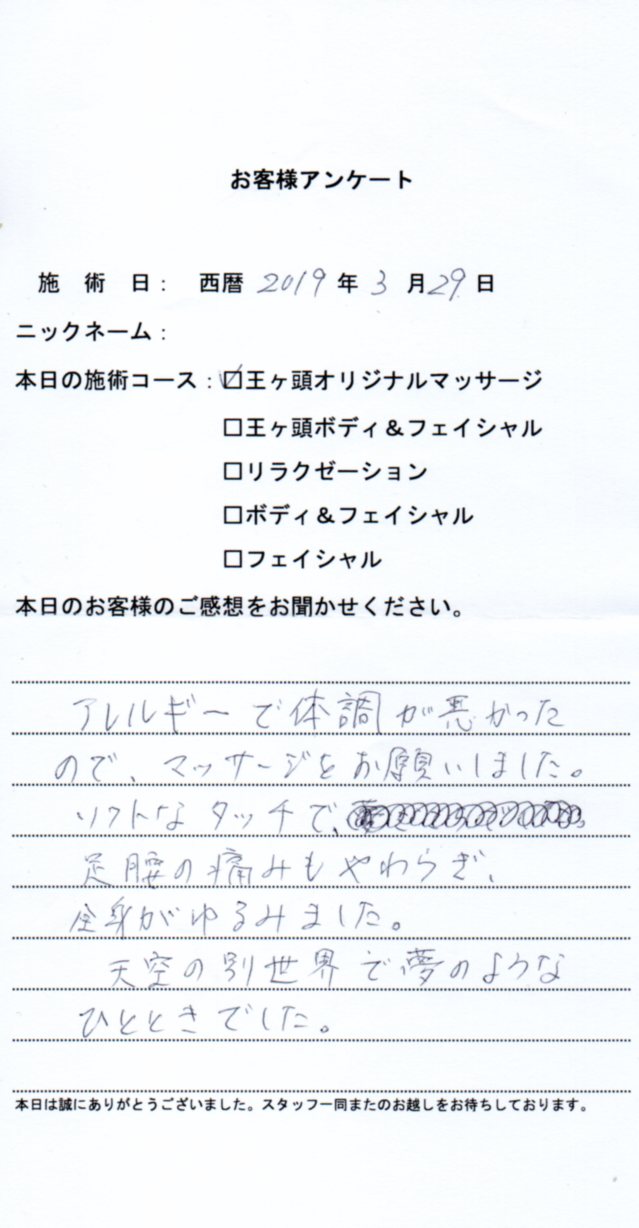 お客様アンケート
施 術 日： 西暦 2019 年 3 月 29 日
ニックネーム：
本日の施術コース：☑王ヶ頭オリジナルマッサージ
□王ヶ頭ボディ＆フェイシャル
□リラクゼーション
□ボディ＆フェイシャル
□フェイシャル
本日のお客様のご感想をお聞かせください。
アレルギーで体調が悪かった
ので、マッサージをお願いしました。
ソフトなタッチで、
足腰の痛みもやわらぎ、
全身がゆるみました。
天空の別世界で夢のような
ひとときでした。
本日は誠にありがとうございました。スタッフ一同またのお越しをお待ちしております。